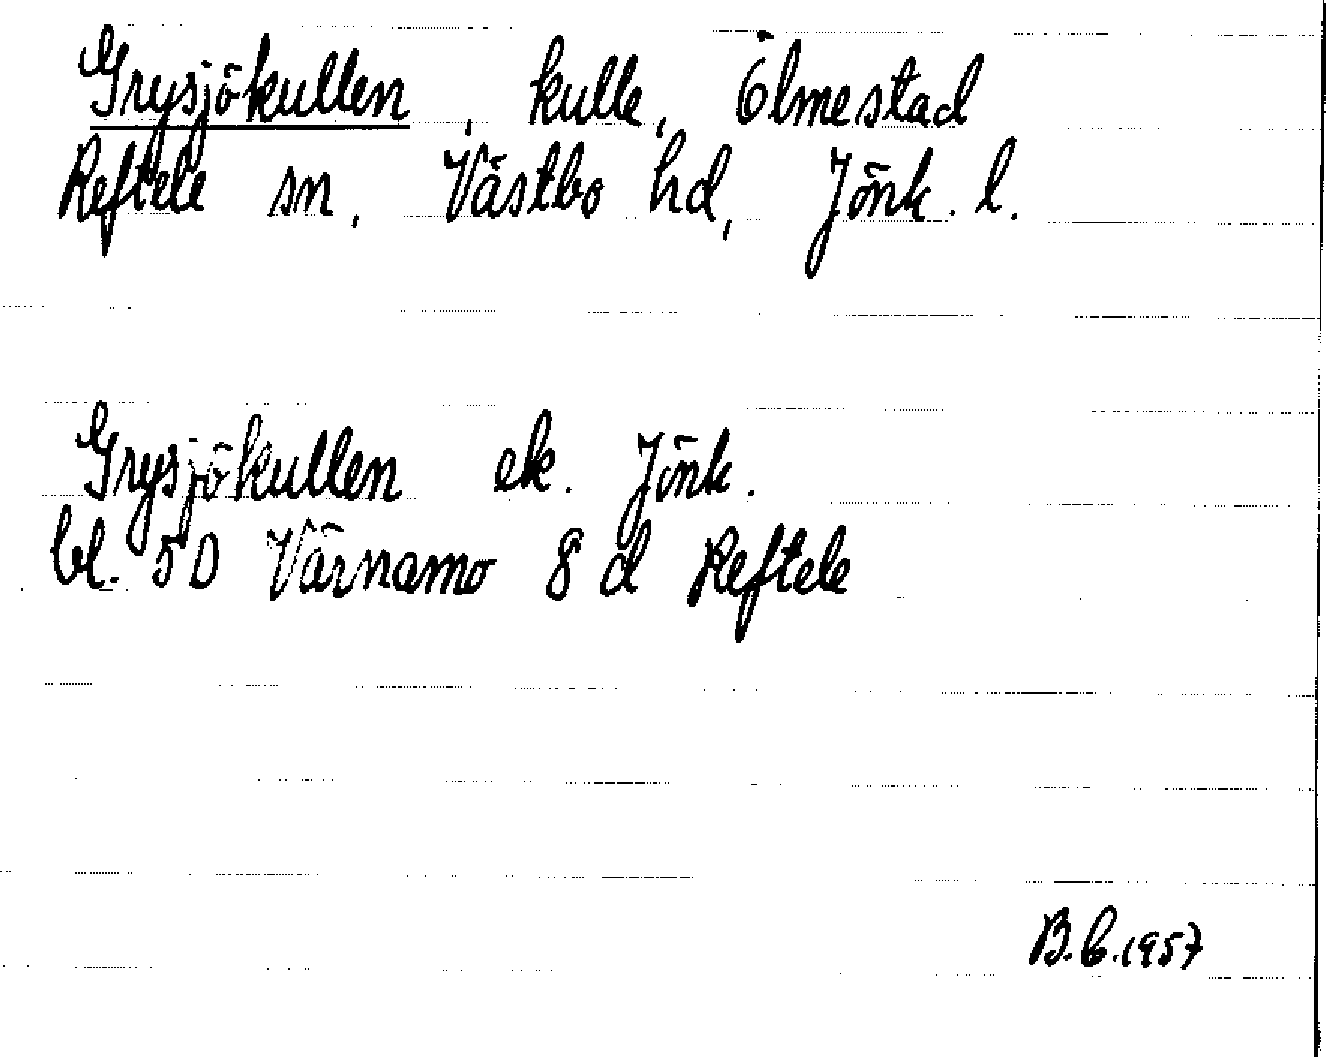 Grysjökullen, kulle, Ölmestad
Reftele sn, Västbo hd, Jönk. l.
Grysjökullen ek. Jönk.
bl. 5D Värnamo 8 d Reftele
B.C.1957